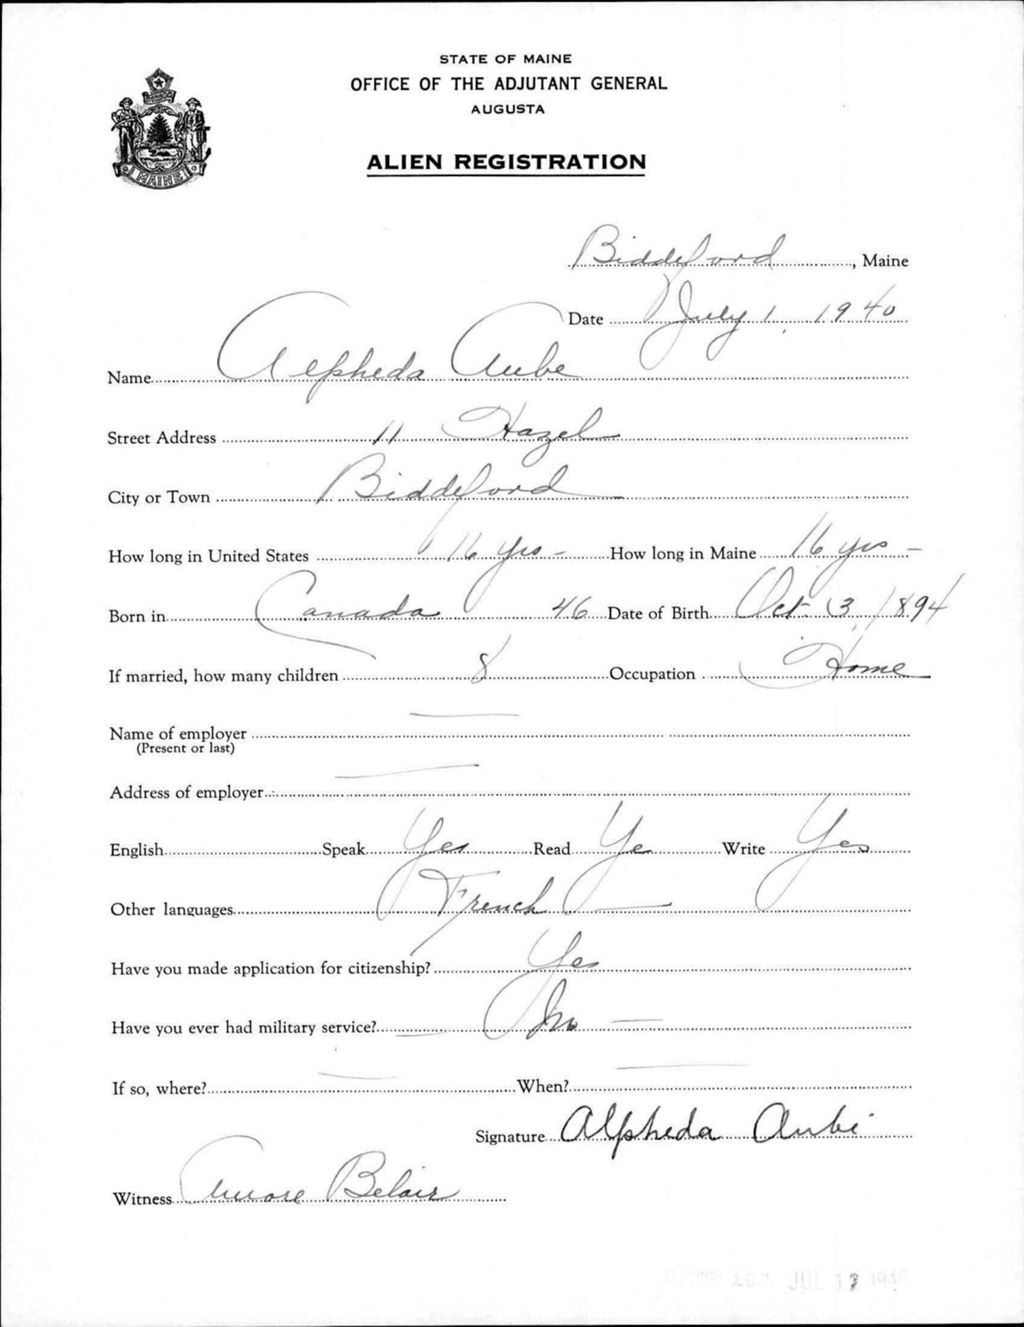 STATE OF MAINE
OFFICE OF THE ADJUTANT GENERAL
AUGUSTA
ALIEN REGISTRATION
MAINE
Biddeford, Maine
Date July 1, 1940
Name Alpheda Aube
Street Address 11 Hazel
City or Town Biddeford
How long in United States 16 yrs - How long in Maine 16 yrs -
Born in Canada 46 Date of Birth Oct 3, 1894
If married, how many children 8 Occupation Home
Name of employer
(Present or last)
Address of employer
English Speak Yes Read Ye Write Yes
Other languages French
Have you made application for citizenship? Yes
Have you ever had military service? No
If so, where? When?
Signature Alpheda Aube
Witness Belair
JUL 13 1940